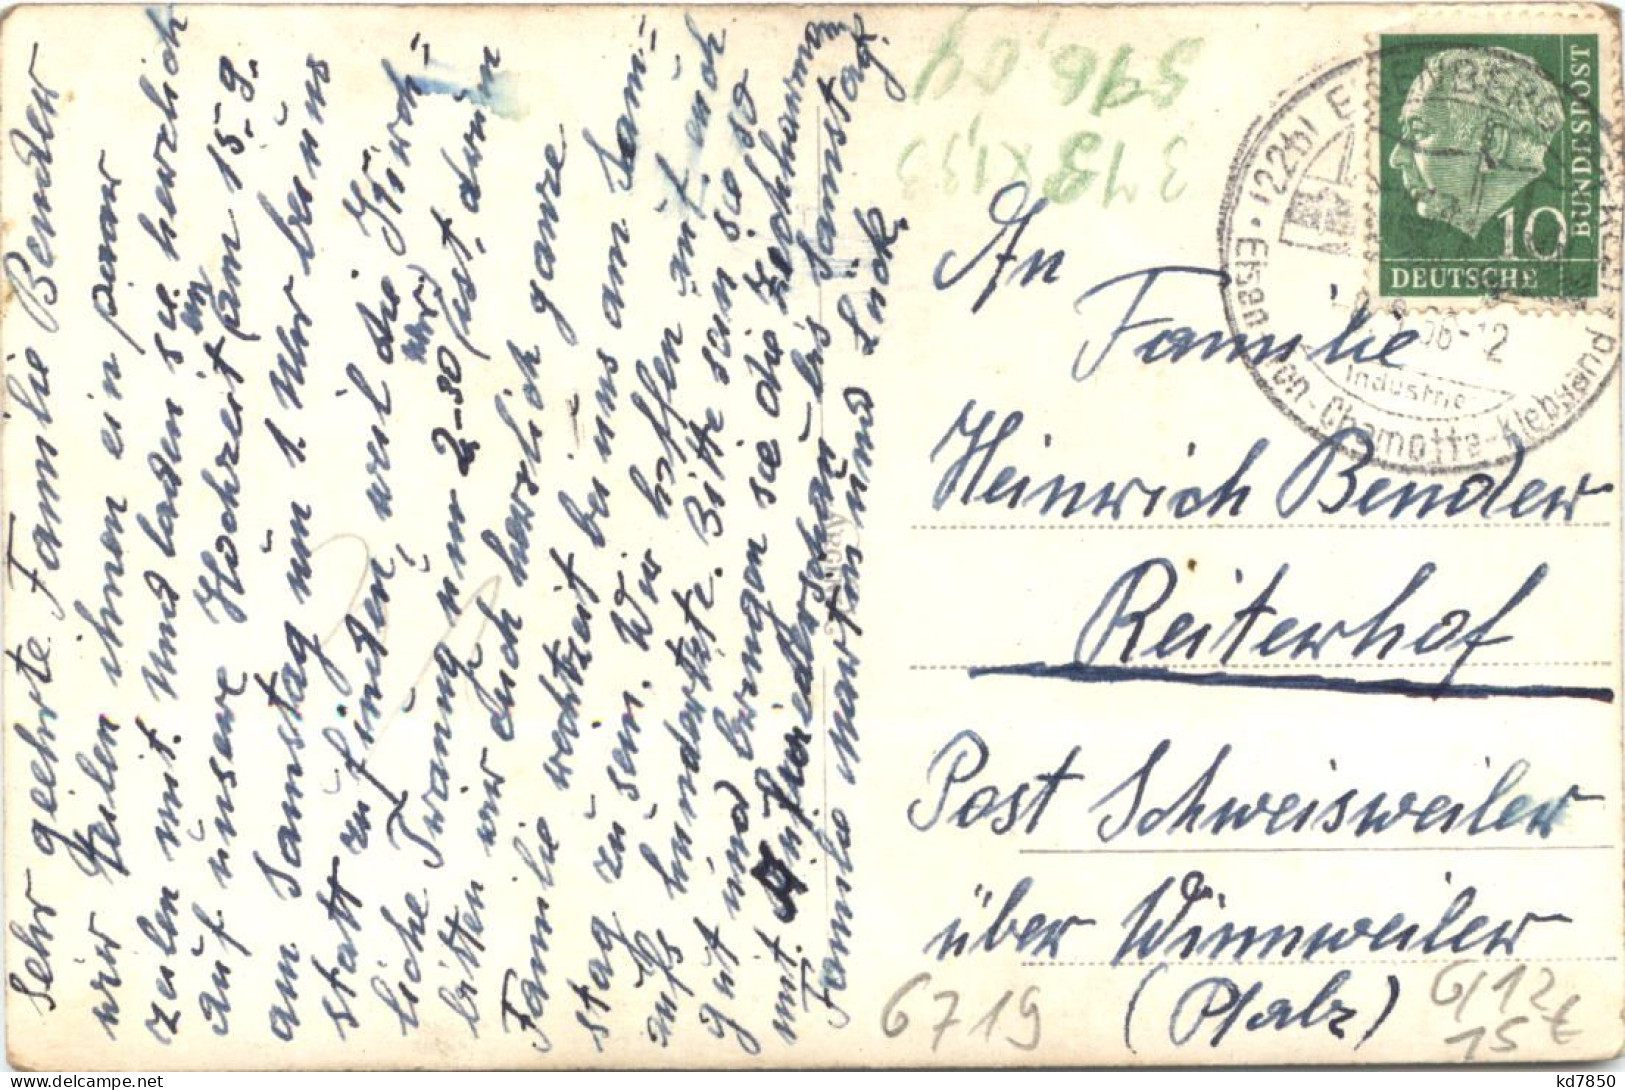 Sehr geehrte Familie Bender
wir teilen ihnen ein paar
zeilen mit. Und laden sie herzlich
ein
auf unsere Hochzeit (am 15.9.
am Samstag um 1. Uhr bei uns
statt zu finden, weil die Kirch-
liche Trauung nur 2-30 (Uhr) ist. drum
bitten wir euch herzlich ganze
Familie Hochtzeit bei uns am Sam-
stag zu sein. Wir hoffen auf euch
aufs hundertste. Bitte sein sie so
gut und bringen sie die Ziechharmonika
mit. Auf wiedersehen bis Samstag.
Familie Martin und Lück.
596,09
An
Familie
Heinrich Bender
Reiterhof
Post Schweisweiler
über Winnweiler
(Pfalz)
6719
G/12
15€
(22b) EISENBERG
Eisen-u.-Ton-Chamotte-Klebsand
Industrie
DEUTSCHE
BUNDESPOST
10
kd7850